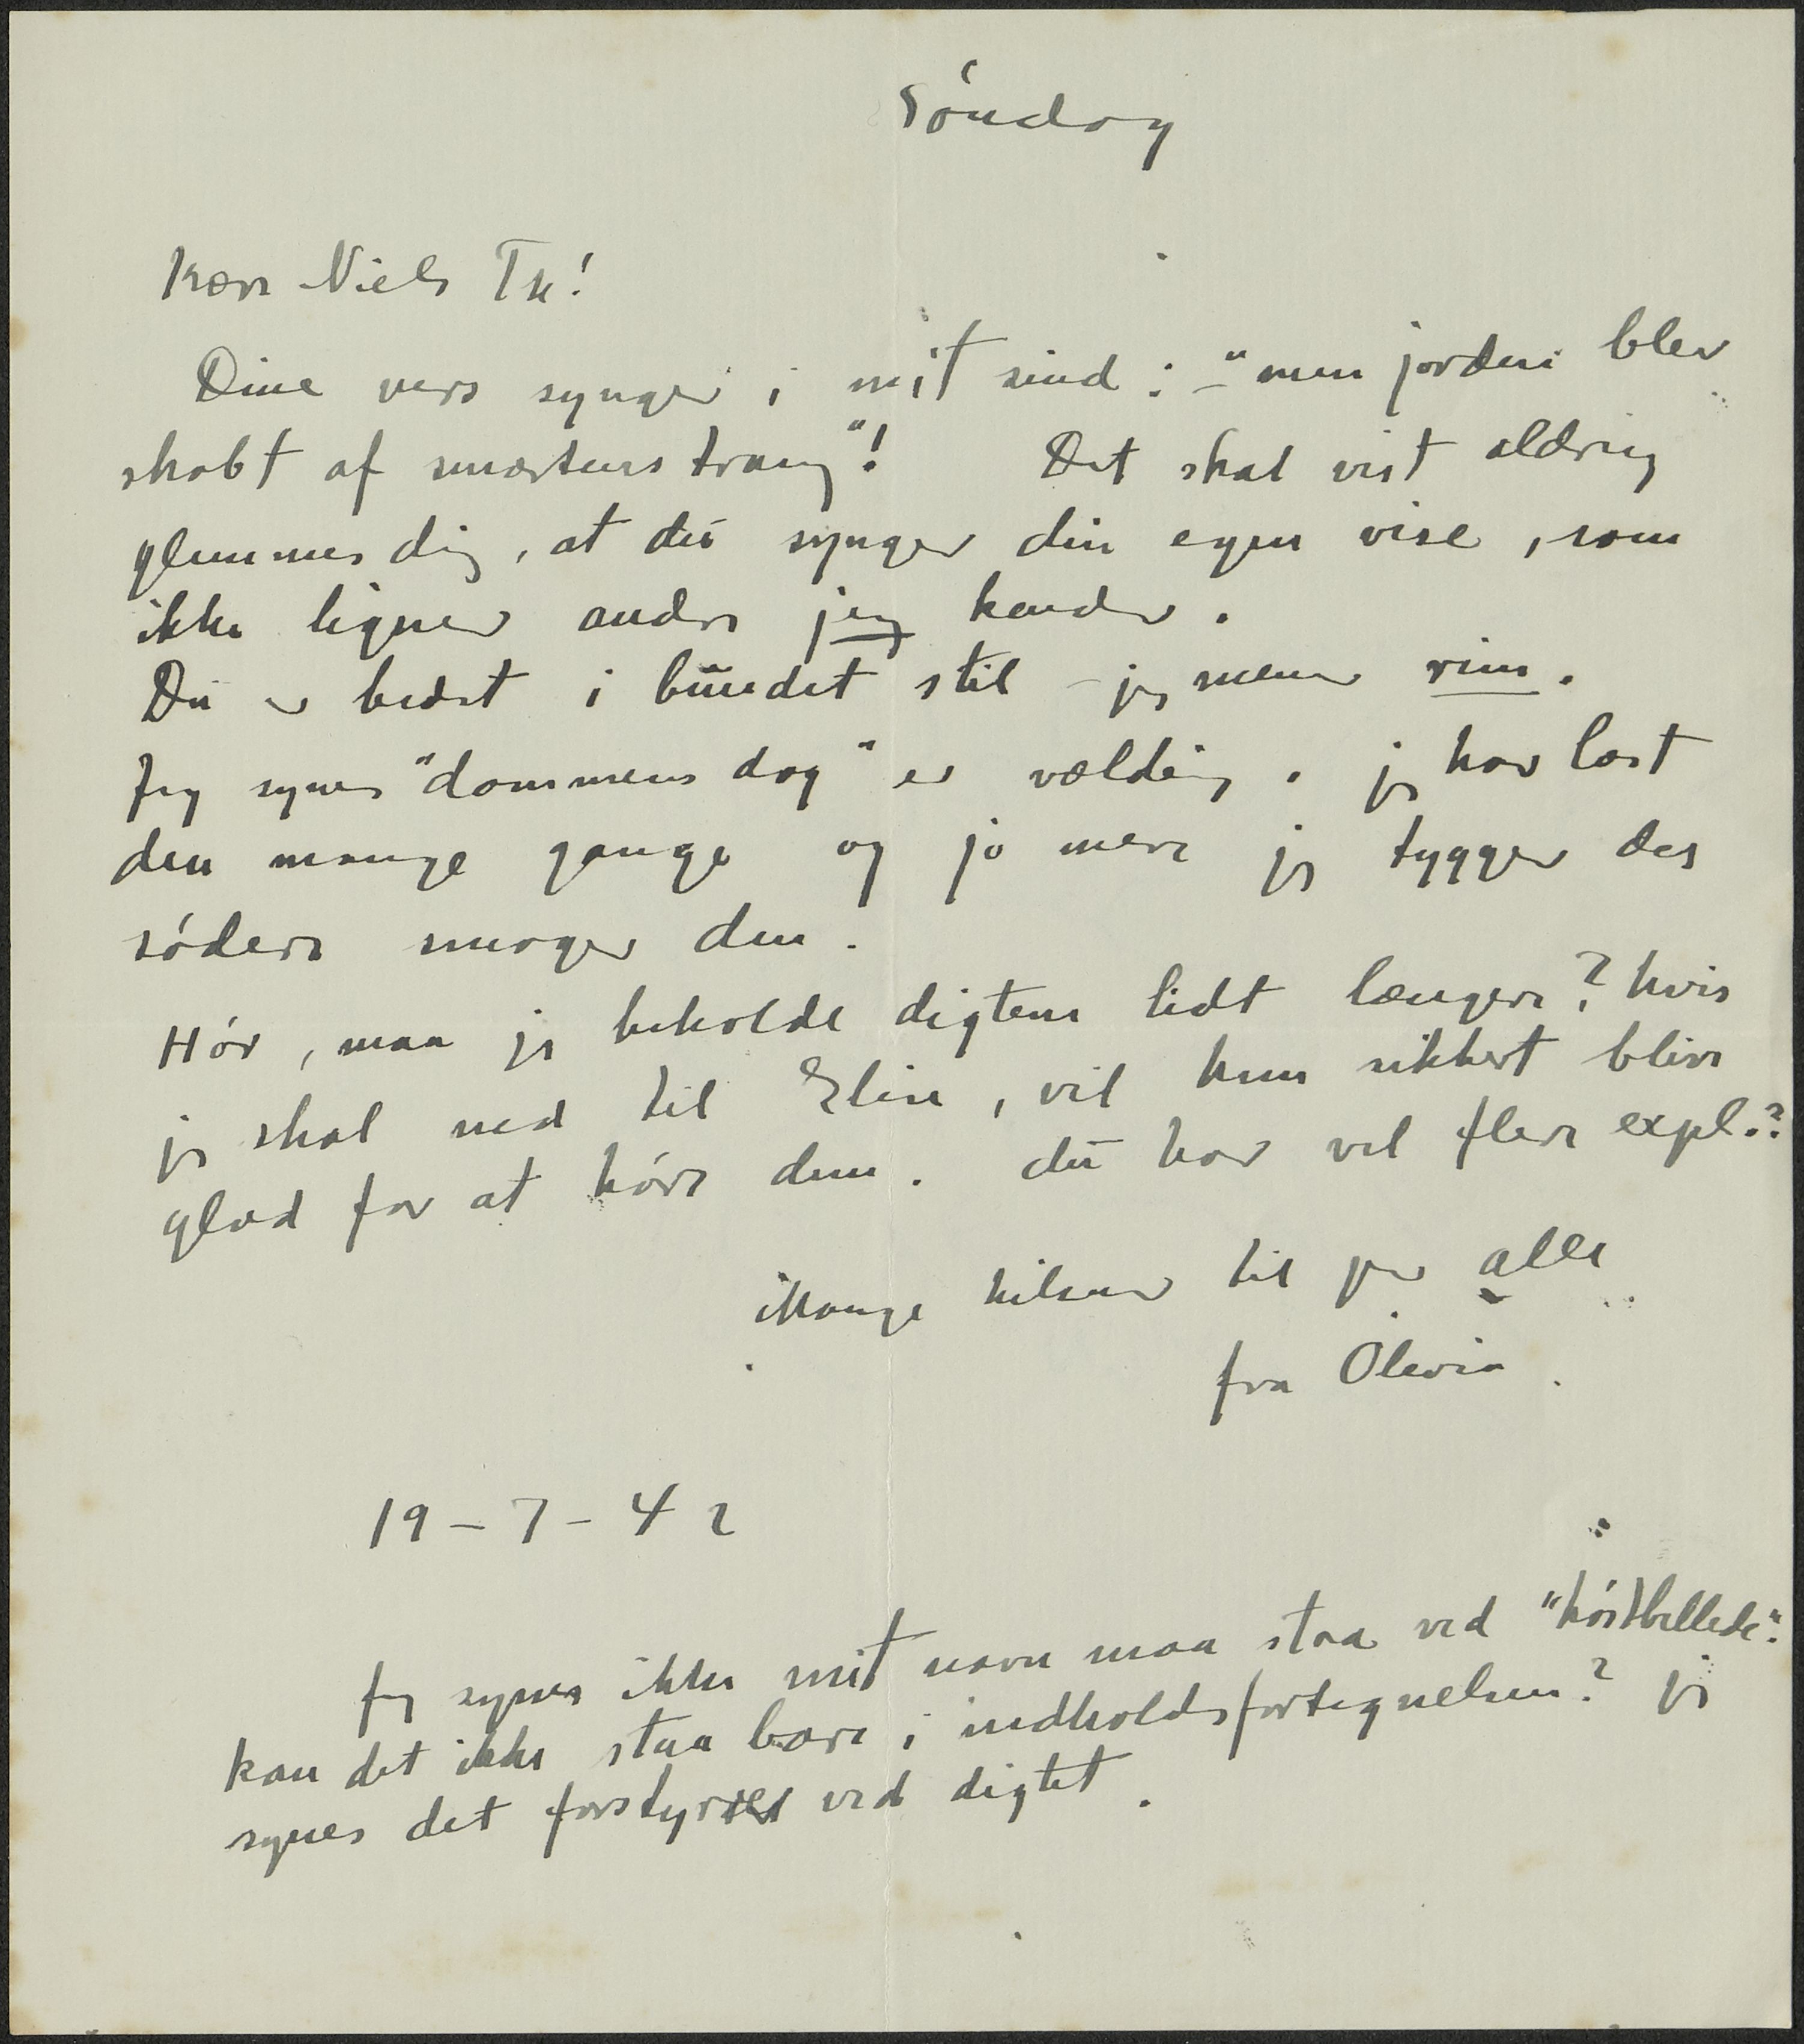 Søndag
Kære Niels Th!
Dine vers synger i mit sind: - "men jorden blev
skabt af smertens trang"! Det skal vist aldrig
glemmes dig, at du synger din egen vise, som
ikke ligner andre jeg kender.
Du er bedst i bundet stil - jeg mener rim.
Jeg synes "dommens dag" er vældig. jeg har læst
den mange gange og jo mere jeg tygger des
sødere smager den.
Hør, maa jeg beholde digtene lidt længere? hvis
jeg skal ned til Elin, vil hun sikkert blive
glad for at høre dem. du har vel flere expl.?
Mange hilsner til jer alle
fra Olivia.
19-7-42
Jeg synes ikke mit navn maa staa ved "høstbillede".
kan det ikke staa bare i indholdsfortegnelsen? jeg
synes det forstyrrer ved digtet.